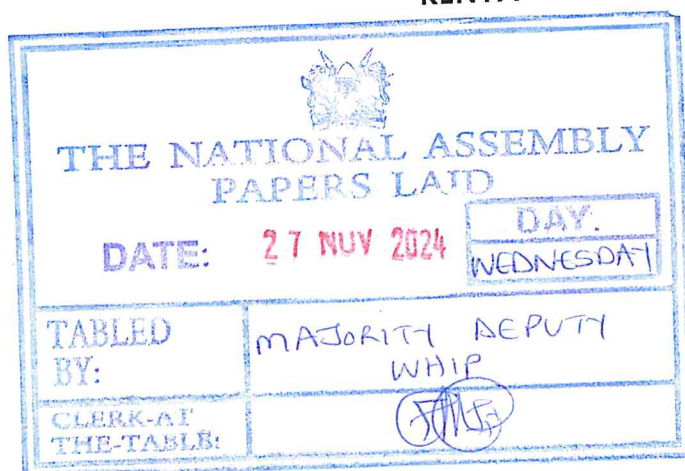 THE NATIONAL ASSEMBLY
PAPERS LAID
DATE: 27 NOV 2024
DAY.
WEDNESDAY
TABLED BY:
MAJORITY DEPUTY
WHIP
CLERK-AT
THE-TABLE: